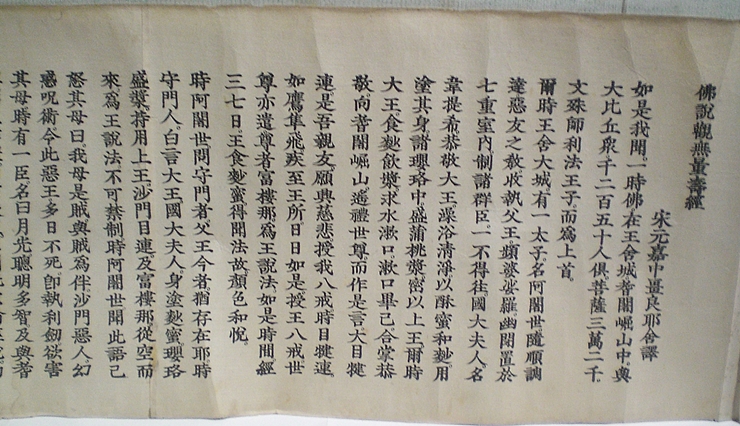 佛說觀無量壽經
宋元嘉中畺良耶舍譯
如是我聞。一時佛在王舍城耆闍崛山中。與
大比丘眾千二百五十人俱。菩薩三萬二千。
文殊師利法王子。而爲上首。
爾時王舍大城。有一太子。名阿闍世。隨順調
達惡友之教。收執父王。頻婆娑羅。幽閉置於
七重室內。制諸群臣。一不得往。國大夫人。名
韋提希。恭敬大王。澡浴清淨。以酥蜜和麨。用
塗其身。諸瓔珞中。盛蒲桃漿。密以上王。爾時
大王。食麨飲漿。求水漱口。漱口畢已。合掌恭
敬。向耆闍崛山。遙禮世尊。而作是言。大目犍
連。是吾親友。願興慈悲。授我八戒。時目犍連。
如鷹隼飛。疾至王所。日日如是。授王八戒。世
尊亦遣。尊者富樓那。爲王說法。如是時間。經
三七日。王食麨蜜。得聞法故。顏色和悅。
時阿闍世。問守門者。父王今者。猶存在耶。時
守門人。白言大王。國大夫人。身塗麨蜜。瓔珞
盛漿。持用上王。沙門目連。及富樓那。從空而
來。爲王說法。不可禁制。時阿闍世。聞此語已。
怒其母曰。我母是賊。與賊爲伴。沙門惡人。幻
惑呪術。令此惡王。多日不死。卽執利劒。欲害
其母。時有一臣。名曰月光。聰明多智。及與耆